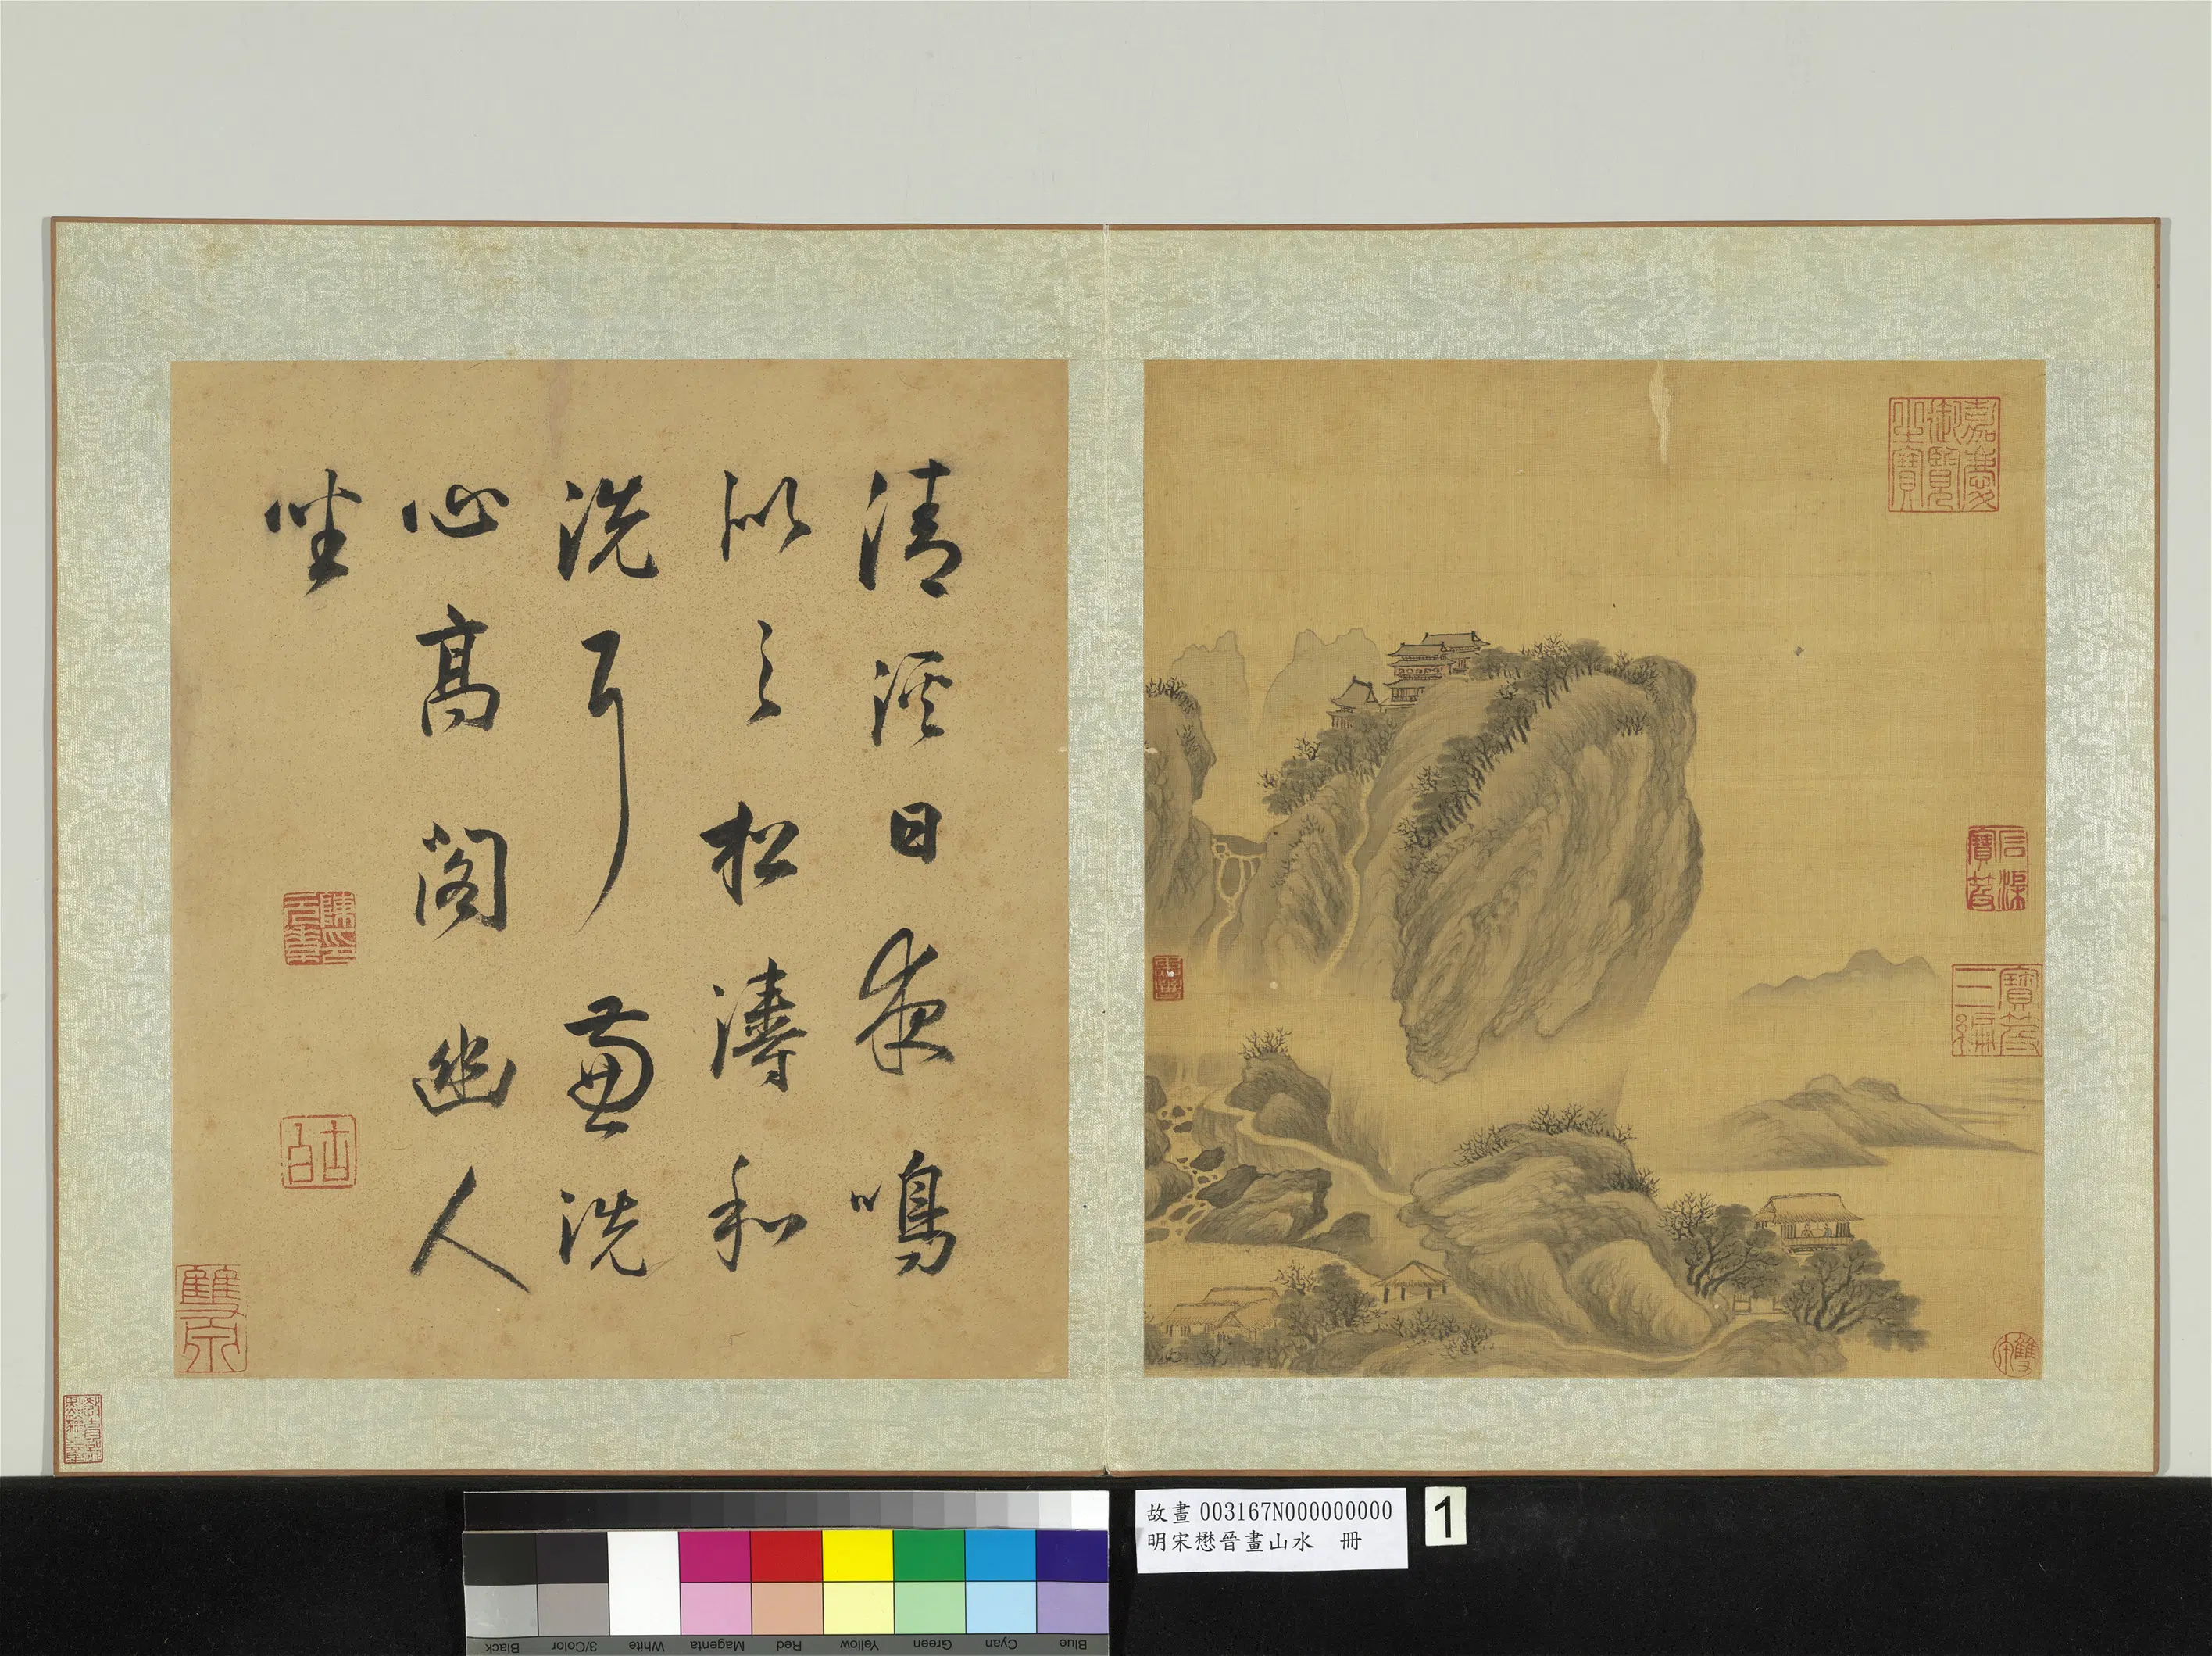 嘉慶御覽之寶
石渠寶笈
寶笈三編
清溪日夜鳴
以之松濤和
洗耳兼洗
心高閣幽人
坐
陳印元素
古白
故畫 003167N000000000
明宋懋晉畫山水　冊
1
Blue
Cyan
Green
Yellow
Red
Magenta
White
3/Color
Black